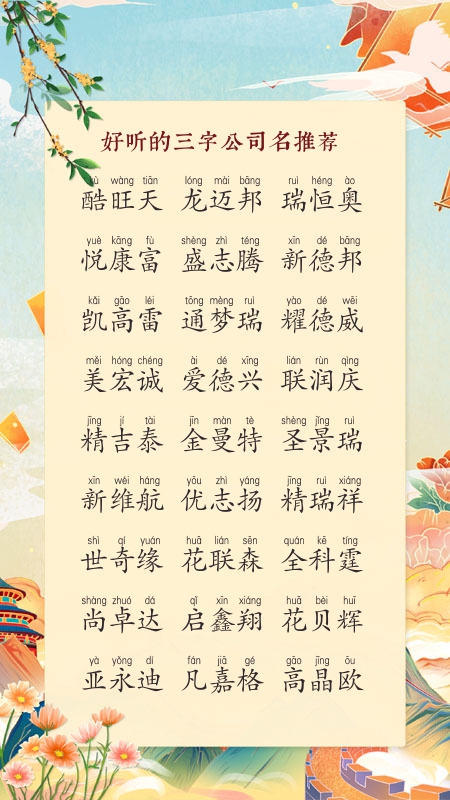 好听的三字公司名推荐
kù wàng tiān lóng mài bāng ruì héng ào
酷旺天 龙迈邦 瑞恒奥
yuè kāng fù shèng zhì téng xīn dé bāng
悦康富 盛志腾 新德邦
kǎi gāo léi tōng mèng ruì yào dé wēi
凯高雷 通梦瑞 耀德威
měi hóng chéng ài dé xīng lián rùn qìng
美宏诚 爱德兴 联润庆
jīng jí tài jīn màn tè shèng jǐng ruì
精吉泰 金曼特 圣景瑞
xīn wéi háng yōu zhì yáng jīng ruì xiáng
新维航 优志扬 精瑞祥
shì qí yuán huā lián sēn quán kē tíng
世奇缘 花联森 全科霆
shàng zhuó dá qǐ xīn xiáng huā bèi huī
尚卓达 启鑫翔 花贝辉
yà yǒng dí fán jiā gé gāo jīng ōu
亚永迪 凡嘉格 高晶欧